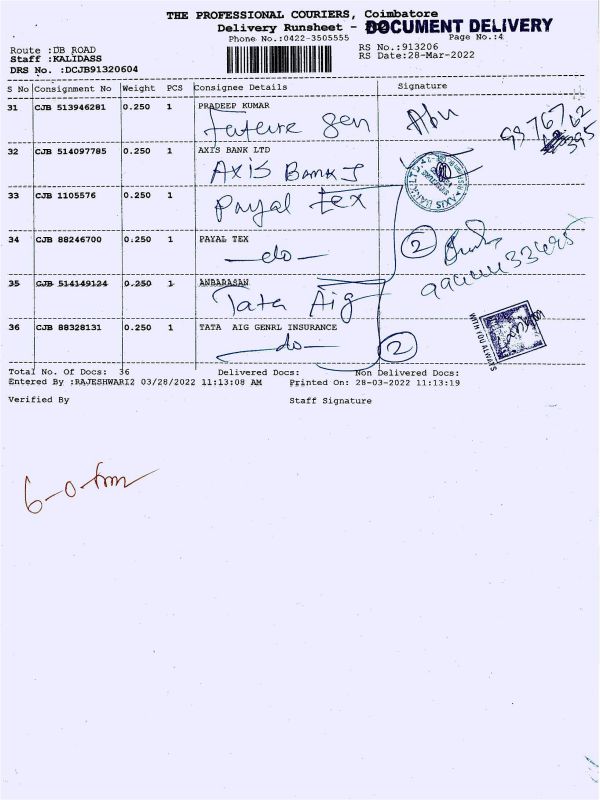 THE PROFESSIONAL COURIERS, Coimbatore
Delivery Runsheet - DOCUMENT DELIVERY
Phone No.:0422-3505555 Page No.:4
Route :DB ROAD RS No.:913206
Staff :KALIDASS RS Date:28-Mar-2022
DRS No. :DCJB91320604
S No Consignment No Weight PCS Consignee Details Signature
31 CJB 513946281 0.250 1 PRADEEP KUMAR
Future Gen Abu
32 CJB 514097785 0.250 1 AXIS BANK LTD
AXIS BANK
33 CJB 1105576 0.250 1
Payal tex
34 CJB 88246700 0.250 1 PAYAL TEX
—do— 2
35 CJB 514149124 0.250 1 ANBARASAN
Tata Aig
36 CJB 88328131 0.250 1 TATA AIG GENRL INSURANCE
—do— 2
WITH YOU ALWAYS
Total No. Of Docs: 36 Delivered Docs: Non Delivered Docs:
Entered By :RAJESHWARI2 03/28/2022 11:13:08 AM Printed On: 28-03-2022 11:13:19
Verified By Staff Signature